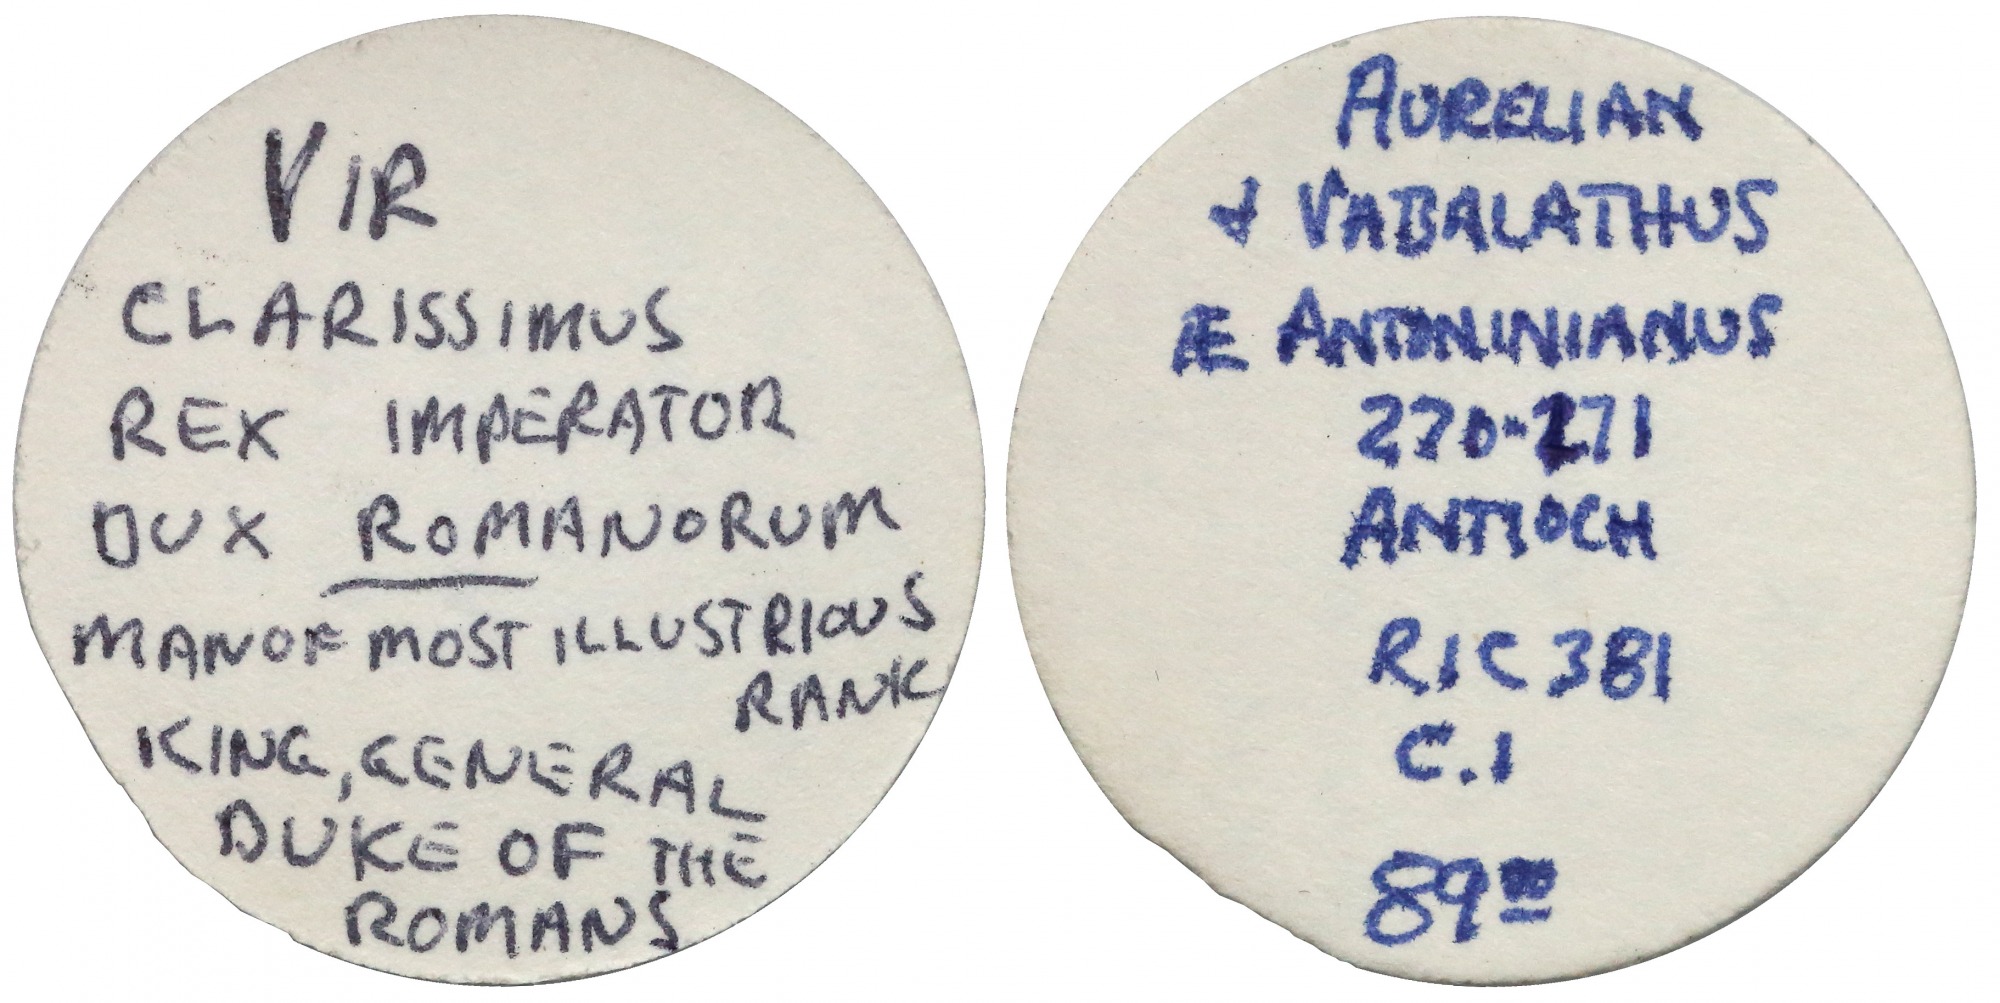 VIR
CLARISSIMUS
REX IMPERATOR
DUX ROMANORUM
MAN OF MOST ILLUSTRIOUS
RANK
KING, GENERAL
DUKE OF THE
ROMANS
AURELIAN
& VABALATHUS
Æ ANTONINIANUS
270-271
ANTIOCH
RIC 381
C.1
89 00